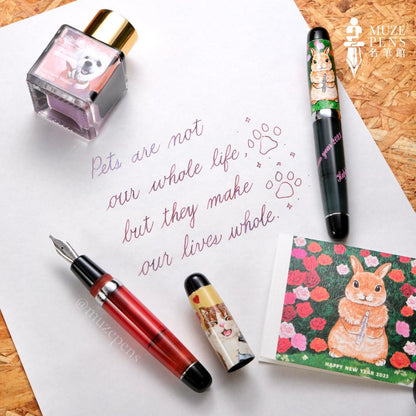 MUZE
PENS
名筆館
Pets are not
our whole life,
but they make
our lives whole.
@muzepens
HAPPY NEW YEAR 2023